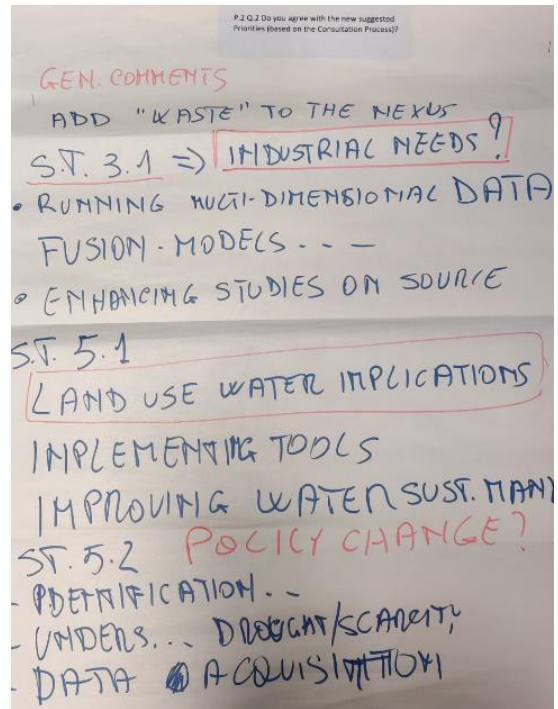 P.2 Q.2 Do you agree with the new suggested
Priorities (based on the Consultation Process)?
GEN. COMMENTS
ADD "WASTE" TO THE NEXUS
S.T. 3.1 => INDUSTRIAL NEEDS?
• RUNNING MULTI-DIMENSIONAL DATA
FUSION-MODELS - - -
• ENHANCING STUDIES ON SOURCE
S.T. 5.1
LAND USE WATER IMPLICATIONS
IMPLEMENTING TOOLS
IMPROVING WATER SUST. MAN
ST. 5.2 POLICY CHANGE?
- IDENTIFICATION..
- UNDERS... DROUGHT/SCARCITY
- DATA ACQUISITION